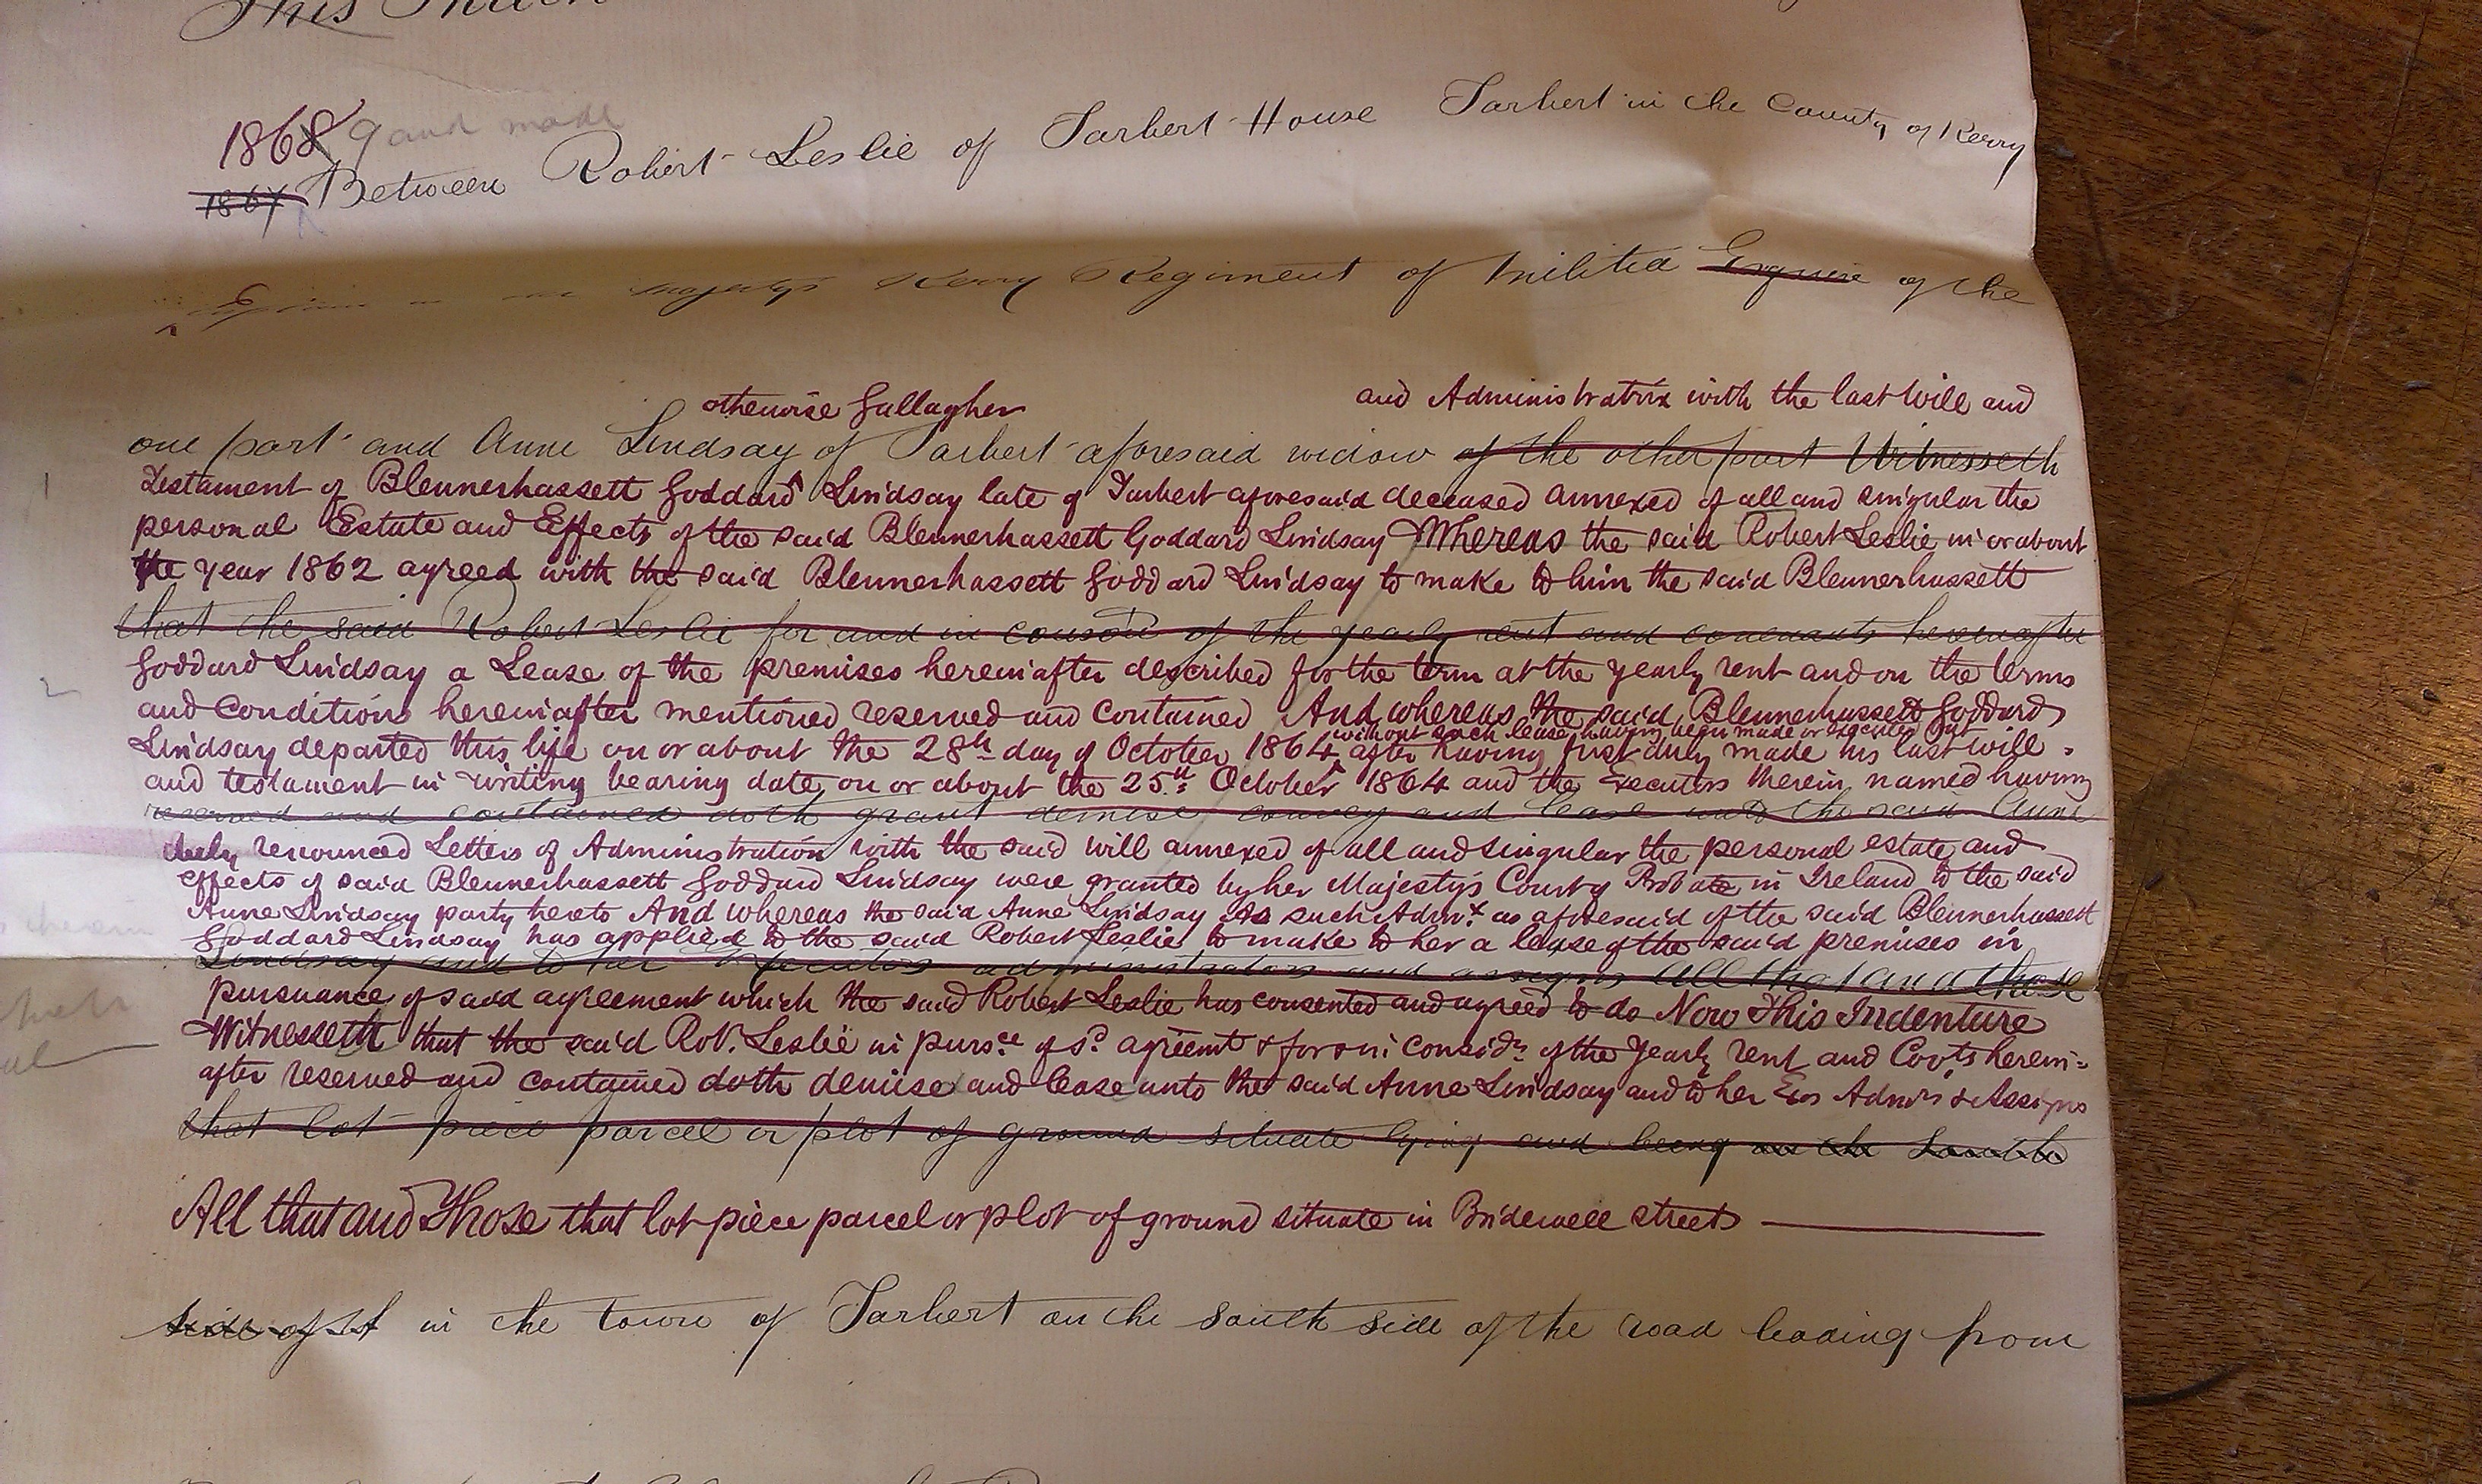 This
1868 9 and made
1867 Between Robert Leslie of Tarbert House Tarbert in the County of Kerry
in Majestys Kerry Regiment of Militia Esquire of the
otherwise Gallagher and Administratrix with the last Will and
one part and Anne Lindsay of Tarbert aforesaid widow of the other part Witnesseth
Testament of Blennerhassett Goddard Lindsay late of Tarbert aforesaid deceased annexed of all and singular the
personal Estate and Effects of the said Blennerhassett Goddard Lindsay Whereas the said Robert Leslie in or about
the year 1862 agreed with the said Blennerhassett Goddard Lindsay to make to him the said Blennerhassett
that the said Robert Leslie for and in conson of the yearly rent and covenants hereinafter
Goddard Lindsay a Lease of the premises hereinafter described for the term at the yearly rent and on the terms
and Conditions hereinafter mentioned reserved and contained And whereas the said Blennerhassett Goddard
without such lease having been made or executed but
Lindsay departed this life on or about the 28th day of October 1864 after having first duly made his last will
and testament in writing bearing date on or about the 25th October 1864 and the Executors therein named having
reserved and contained doth grant demise convey and lease unto the said Anne
duly renounced Letters of Administration with the said will annexed of all and singular the personal estate and
effects of said Blennerhassett Goddard Lindsay were granted by her Majesty's Court of Probate in Ireland to the said
Anne Lindsay party hereto And whereas the said Anne Lindsay As such Admx as aforesaid of the said Blennerhassett
Goddard Lindsay has applied to the said Robert Leslie to make to her a lease of the said premises in
Lindsay and to her Executors administrators and assigns All that and those
pursuance of said agreement which the said Robert Leslie has consented and agreed to do Now This Indenture
Witnesseth that the said Rob. Leslie in pursce of sd agreemt & for & in considn of the Yearly rent and Covts herein=
after reserved and contained doth demise and lease unto the said Anne Lindsay and to her Exs Admrs & Assigns
that lot piece parcel or plot of ground situate lying and being on the South
All that and Those that lot piece parcel or plot of ground situate in Bridewell street
side of it in the town of Tarbert on the south side of the road leading from